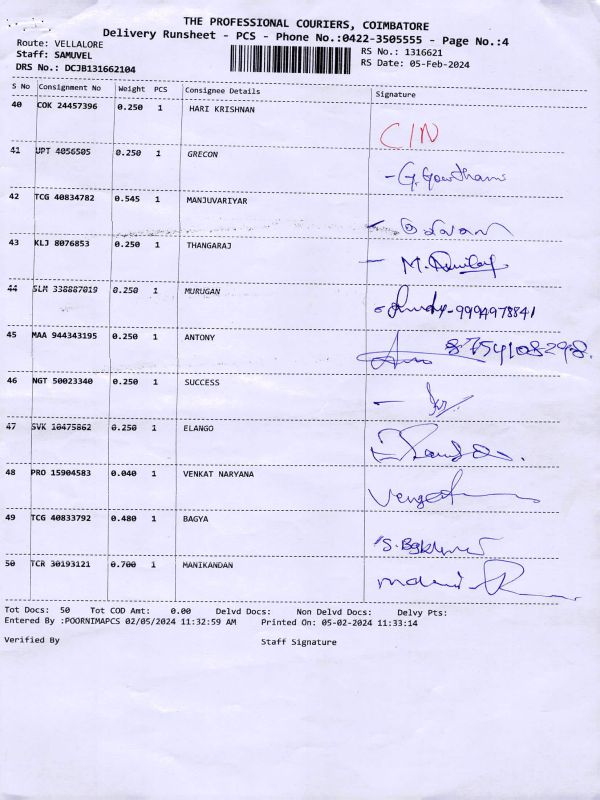 THE PROFESSIONAL COURIERS, COIMBATORE
Delivery Runsheet - PCS - Phone No.:0422-3505555 - Page No.:4
Route: VELLALORE
RS No.: 1316621
Staff: SAMUVEL
RS Date: 05-Feb-2024
DRS No.: DCJB131662104
S No Consignment No Weight PCS Consignee Details Signature
40 COK 24457396 0.250 1 HARI KRISHNAN C/N
41 UPT 4056505 0.250 1 GRECON - G. Gowtham
42 TCG 40834782 0.545 1 MANJUVARIYAR
43 KLJ 8076853 0.250 1 THANGARAJ
44 SLM 338887019 0.250 1 MURUGAN 9994978841
45 MAA 944343195 0.250 1 ANTONY 8754108298
46 NGT 50023340 0.250 1 SUCCESS
47 SVK 10475862 0.250 1 ELANGO
48 PRO 15904583 0.040 1 VENKAT NARYANA
49 TCG 40833792 0.480 1 BAGYA
50 TCR 30193121 0.700 1 MANIKANDAN
Tot Docs: 50 Tot COD Amt: 0.00 Delvd Docs: Non Delvd Docs: Delvy Pts:
Entered By :POORNIMAPCS 02/05/2024 11:32:59 AM Printed On: 05-02-2024 11:33:14
Verified By Staff Signature